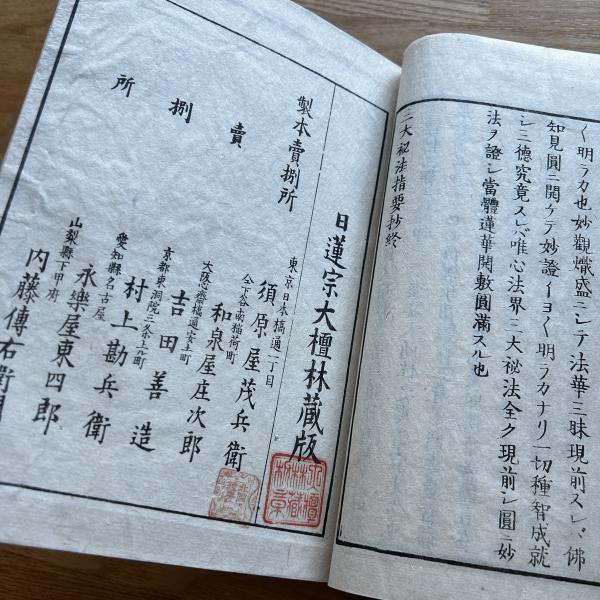 く明ラカ也妙觀熾盛ニシテ法華三昧現前スレバ佛
知見圓ニ開ケテ妙證イヨ〱明ラカナリ一切種智成就
シ三德究竟スレバ唯心法界三大祕法全ク現前シ圓ニ妙
法ヲ證シ當體蓮華開敷圓滿スル也
三大祕法指要抄終
日蓮宗大檀林藏版
製本賣捌所
東京日本橋通一丁目
須原屋茂兵衛
仝下谷南稲荷町
和泉屋庄次郎
大阪心齋橋通安土町
吉田善造
京都東洞院三条上ル町
村上勘兵衛
愛知縣名古屋
永樂屋東四郎
山梨縣下甲府
内藤傳右衛門
賣捌所